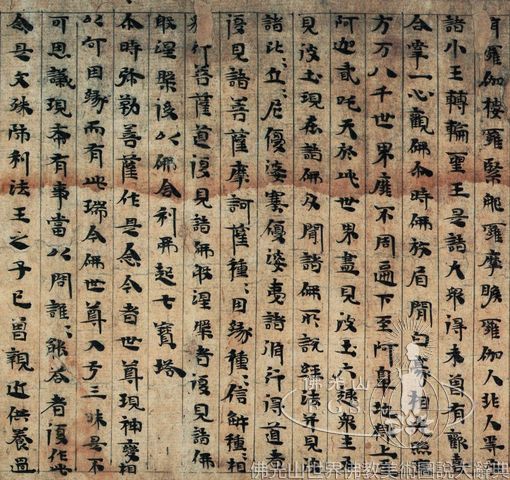 羅伽樓羅緊那羅摩睺羅伽人非人等
諸小王轉輪聖王是諸大衆得未曾有歡喜
合掌一心觀佛尒時佛放眉間白豪相光照
方万八千世界靡不周遍下至阿鼻地獄上至
阿迦貳吒天於此世界盡見彼土六趣衆生
見彼土現在諸佛及聞諸佛所說經法并見
諸比〻丘〻尼優婆塞優婆夷諸脩行得道者
復見諸菩薩摩訶薩種〻因緣種〻信解種〻相
行菩薩道復見諸佛般涅槃者復見諸佛
般涅槃後以佛舍利起七寶塔
尒時弥勒菩薩作是念今者世尊現神變相
以何因緣而有此瑞今佛世尊入于三昧是不
可思議現希有事當以問誰〻能荅者復作此
念是文殊師利法王之子已曾親近供養過
佛光山
F.G.S.
佛光山世界佛教美術圖說大辭典